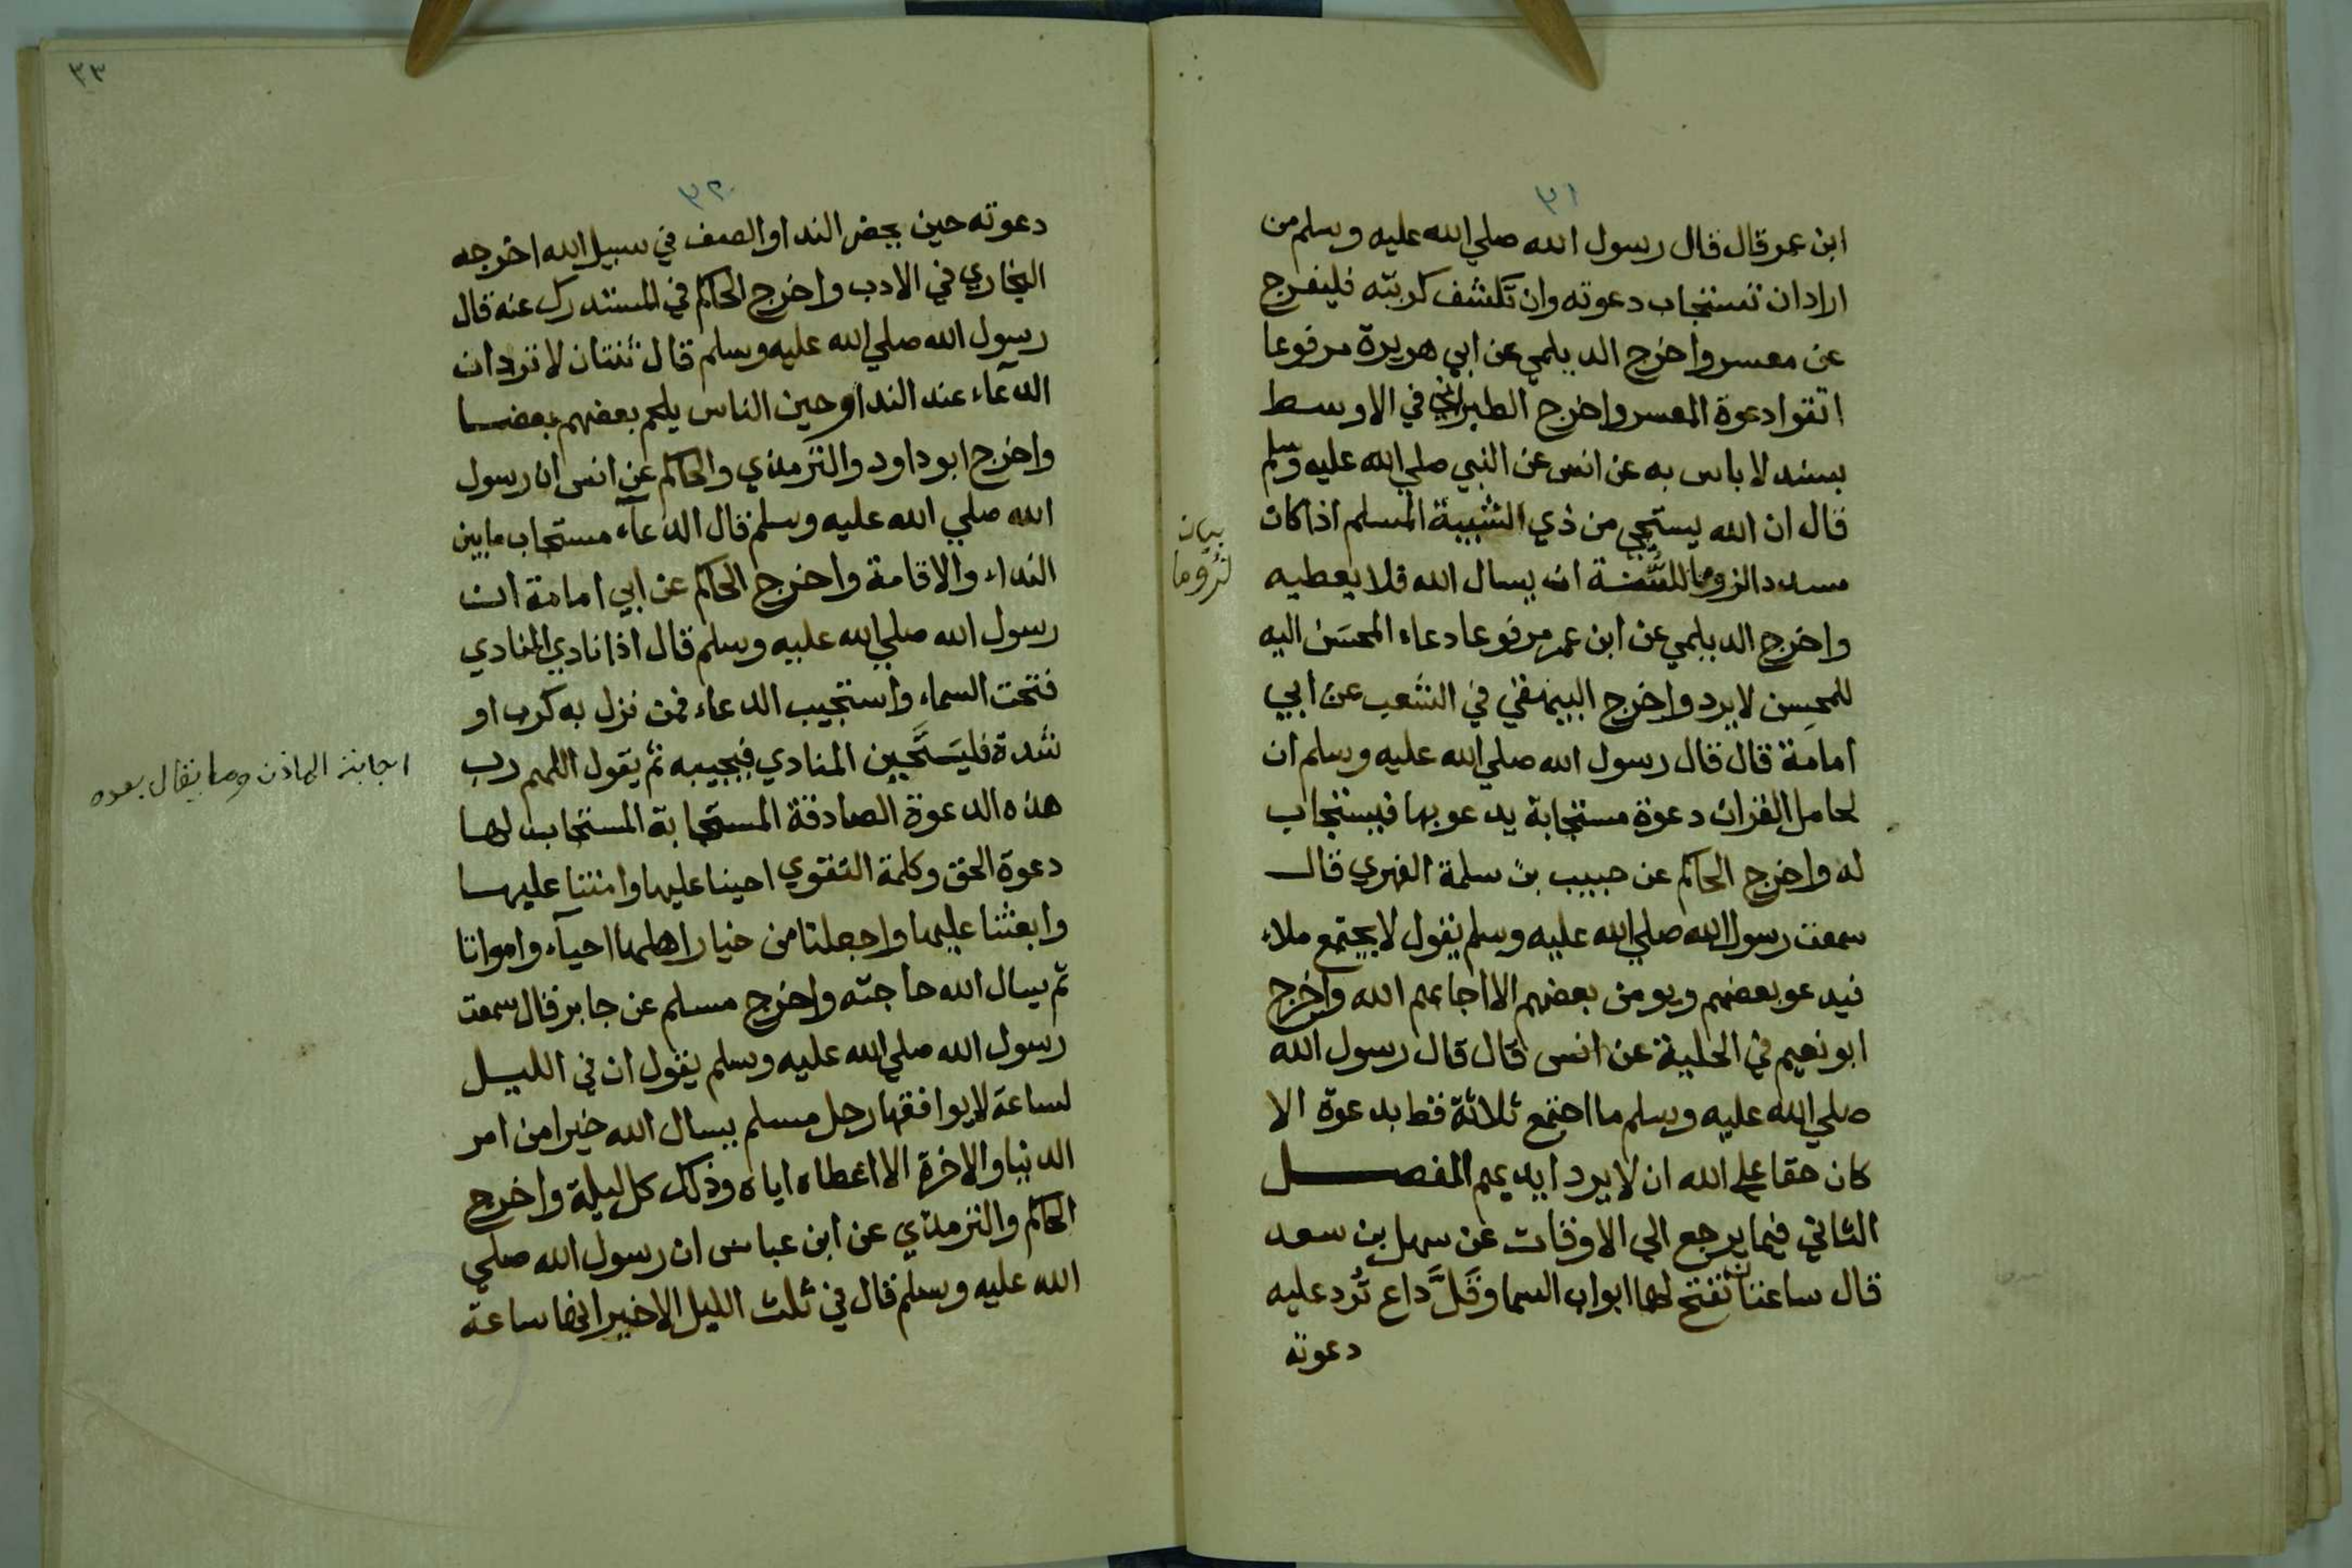 ٣١
ابن عمر قال قال رسول الله صلي الله عليه وسلم من
اراد ان تستجاب دعوته وان تكشف كربته فليفرج
عن معسر واخرج الديلمي عن ابي هريرة مرفوعا
اتقوا دعوة المعسر واخرج الطبراني في الاوسط
بسند لا باس به عن انس عن النبي صلي الله عليه وسلم
قال ان الله يستحيي من ذي الشيبة المسلم اذا كان
مسددا لزوما للسنة ان يسال الله فلا يعطيه
بيان
لزوما
واخرج الديلمي عن ابن عمر مرفوعا دعاء المحسَن اليه
للمحسِن لا يرد واخرج البيهقي في الشعب عن ابي
امامة قال قال رسول الله صلي الله عليه وسلم ان
لحامل القران دعوة مستجابة يدعو بها فيستجاب
له واخرج الحاكم عن حبيب بن سلمة الفهري قال
سمعت رسول الله صلي الله عليه وسلم يقول لا يجتمع ملاء
فيدعو بعضهم ويومن بعضهم الا اجابهم الله واخرج
ابو نعيم في الحلية عن انس قال قال رسول الله
صلي الله عليه وسلم ما اجتمع ثلاثة قط بدعوة الا
كان حقا علي الله ان لا يرد ايديهم الفصل
الثاني فيما يرجع الي الاوقات عن سهل بن سعد
قال ساعتان تفتح لهما ابواب السما وقَلَّ داع تُرد عليه
دعوته
٣٣
٣٢
دعوته حين يحضر الندا والصف في سبيل الله اخرجه
البخاري في الادب واخرج الحاكم في المستدرك عنه قال
رسول الله صلي الله عليه وسلم قال ثنتان لا تردان
الدعاء عند الندا وحين الناس يلحم بعضهم بعضا
واخرج ابو داود والترمذي والحاكم عن انس ان رسول
الله صلي الله عليه وسلم قال الدعآء مستجاب ما بين
النداء والاقامة واخرج الحاكم عن ابي امامة ان
رسول الله صلي الله عليه وسلم قال اذا نادي المنادي
فتحت السماء واستجيب الدعاء فمن نزل به كرب او
شدة فليتحين المنادي فيجيبه ثم يقول اللهم رب
اجابة الماذن وما يقال بعده
هذه الدعوة الصادقة المستجابة المستجاب لها
دعوة الحق وكلمة التقوي احينا عليها وامتنا عليها
وابعثنا عليها واجعلنا من خيار اهلها احيآء وامواتا
ثم يسال الله حاجته واخرج مسلم عن جابر قال سمعت
رسول الله صلي الله عليه وسلم يقول ان في الليل
لساعة لا يوافقها رجل مسلم يسال الله خيرا من امر
الدنيا والاخرة الا اعطاه اياه وذلك كل ليلة واخرج
الحاكم والترمذي عن ابن عباس ان رسول الله صلي
الله عليه وسلم قال في ثلث الليل الاخير انها ساعة